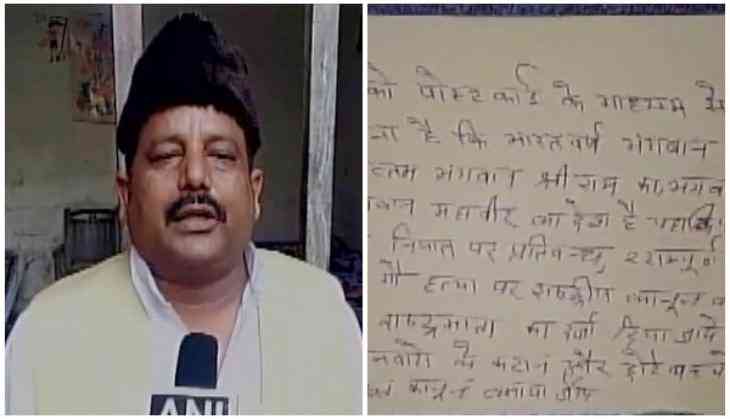 को पोस्ट कार्ड के माध्यम से
है कि भारत वर्ष भगवान
भगवान श्री राम का, भगव
महावीर का देश है यहां
निर्यात पर प्रतिबन्ध, सम्पूर्ण
गौ हत्या पर राष्ट्रीय कानून
राष्ट्रमाता का दर्जा दिया जाये
के कटान और छोटे
कानून बनाया जाये
ANI